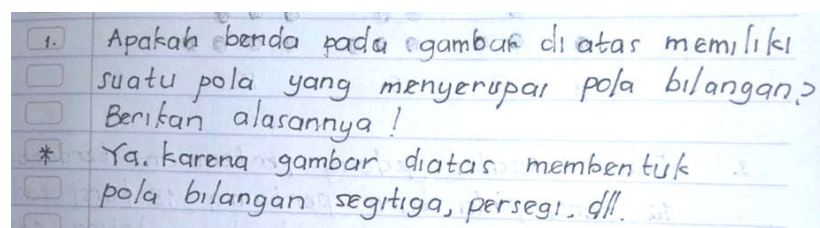 1. Apakah benda pada gambar di atas memiliki
suatu pola yang menyerupai pola bilangan?
Berikan alasannya!
* Ya. karena gambar diatas membentuk
pola bilangan segitiga, persegi. dll.